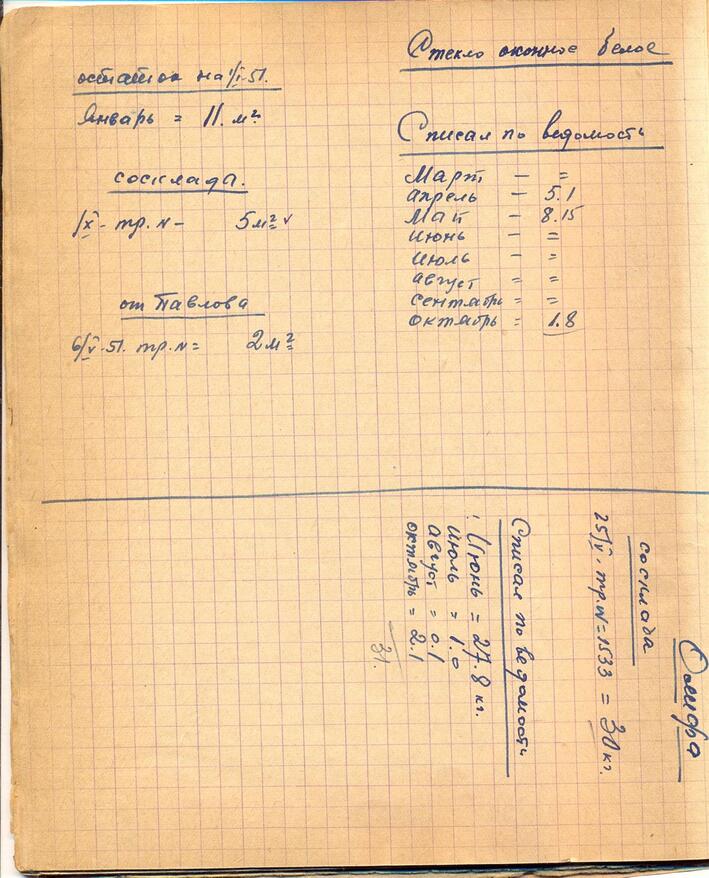 Стекло оконное белое
остаток на 1/I-51.
Январь = 11. м²
со склада.
1/X - тр. N - 5 м² v
от Павлова
6/V-51. тр. N = 2 м²
Списал по ведомость
Март - =
апрель - 5.1
Май - 8.15
июнь - =
июль - =
август = =
сентябрь = =
октябрь = 1.8
со склада
25/V. тр. N = 1533 = 30 кг.
Списал по ведомость
Июнь = 27.8 кг.
июль = 1.0
август = 0.1
октябрь = 2.1
31.